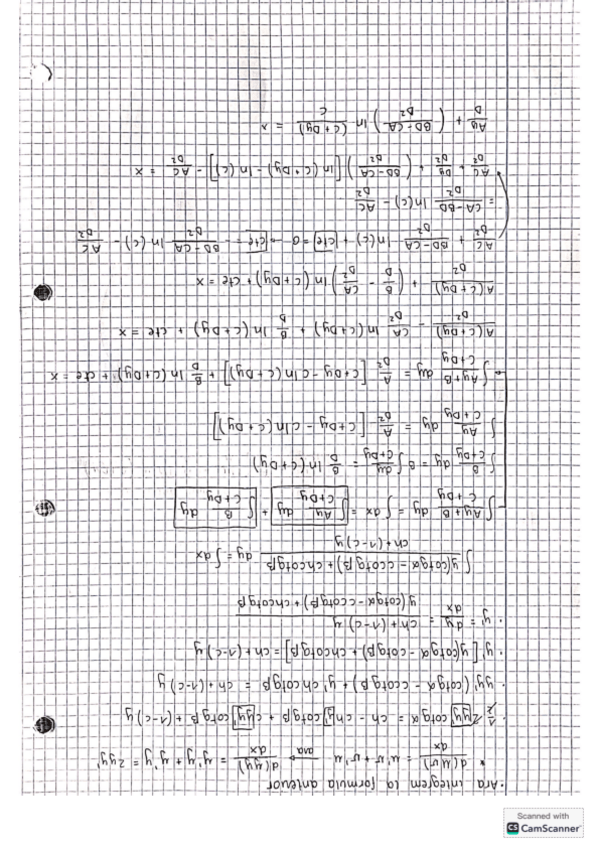 · Ara integrem la formula anterior
* d(u·v)/dx = u'v + v'u ara d(yy)/dx = y'y + y'y = 2yy'
· 1/2 2yy' cotgα = ch - chy' cotgβ + cyy' cotgβ + (1-c)y
· yy' (cotgα - ccotgβ) + y' ch cotgβ = ch + (1-c)y
· y' [y(cotgα - cotgβ) + chcotgβ] = ch + (1-c)y
· y' = dy/dx = ch + (1-c)y / y(cotgα - ccotgβ) + chcotgβ
∫ y(cotgα - ccotgβ) + chcotgβ / ch + (1-c)y dy = ∫dx
∫ Ay+B / C+Dy dy = ∫dx = ∫ Ay / C+Dy dy + ∫ B / C+Dy dy
∫ B / C+Dy dy = B ∫ dy / C+Dy = B/D ln(C+Dy)
∫ Ay / C+Dy dy = A/D² [C+Dy - Cln(C+Dy)]
∫ Ay+B / C+Dy dy = A/D² [C+Dy - Cln(C+Dy)] + B/D ln(C+Dy) + cte = x
A(C+Dy)/D² - CA/D² ln(C+Dy) + B/D ln(C+Dy) + cte = x
A(C+Dy)/D² + (B/D - CA/D²) ln(C+Dy) + cte = x
AC/D² + BD-CA/D² ln(C) + cte = 0 → cte = - BD-CA/D² ln(C) - AC/D²
= CA-BD/D² ln(C) - AC/D²
AC/D² + Dy/D² + (BD-CA/D²) [ln(C+Dy) - ln(C)] - AC/D² = x
Ay/D + (BD-CA/D²) ln (C+Dy)/C = x
Scanned with
CS CamScanner